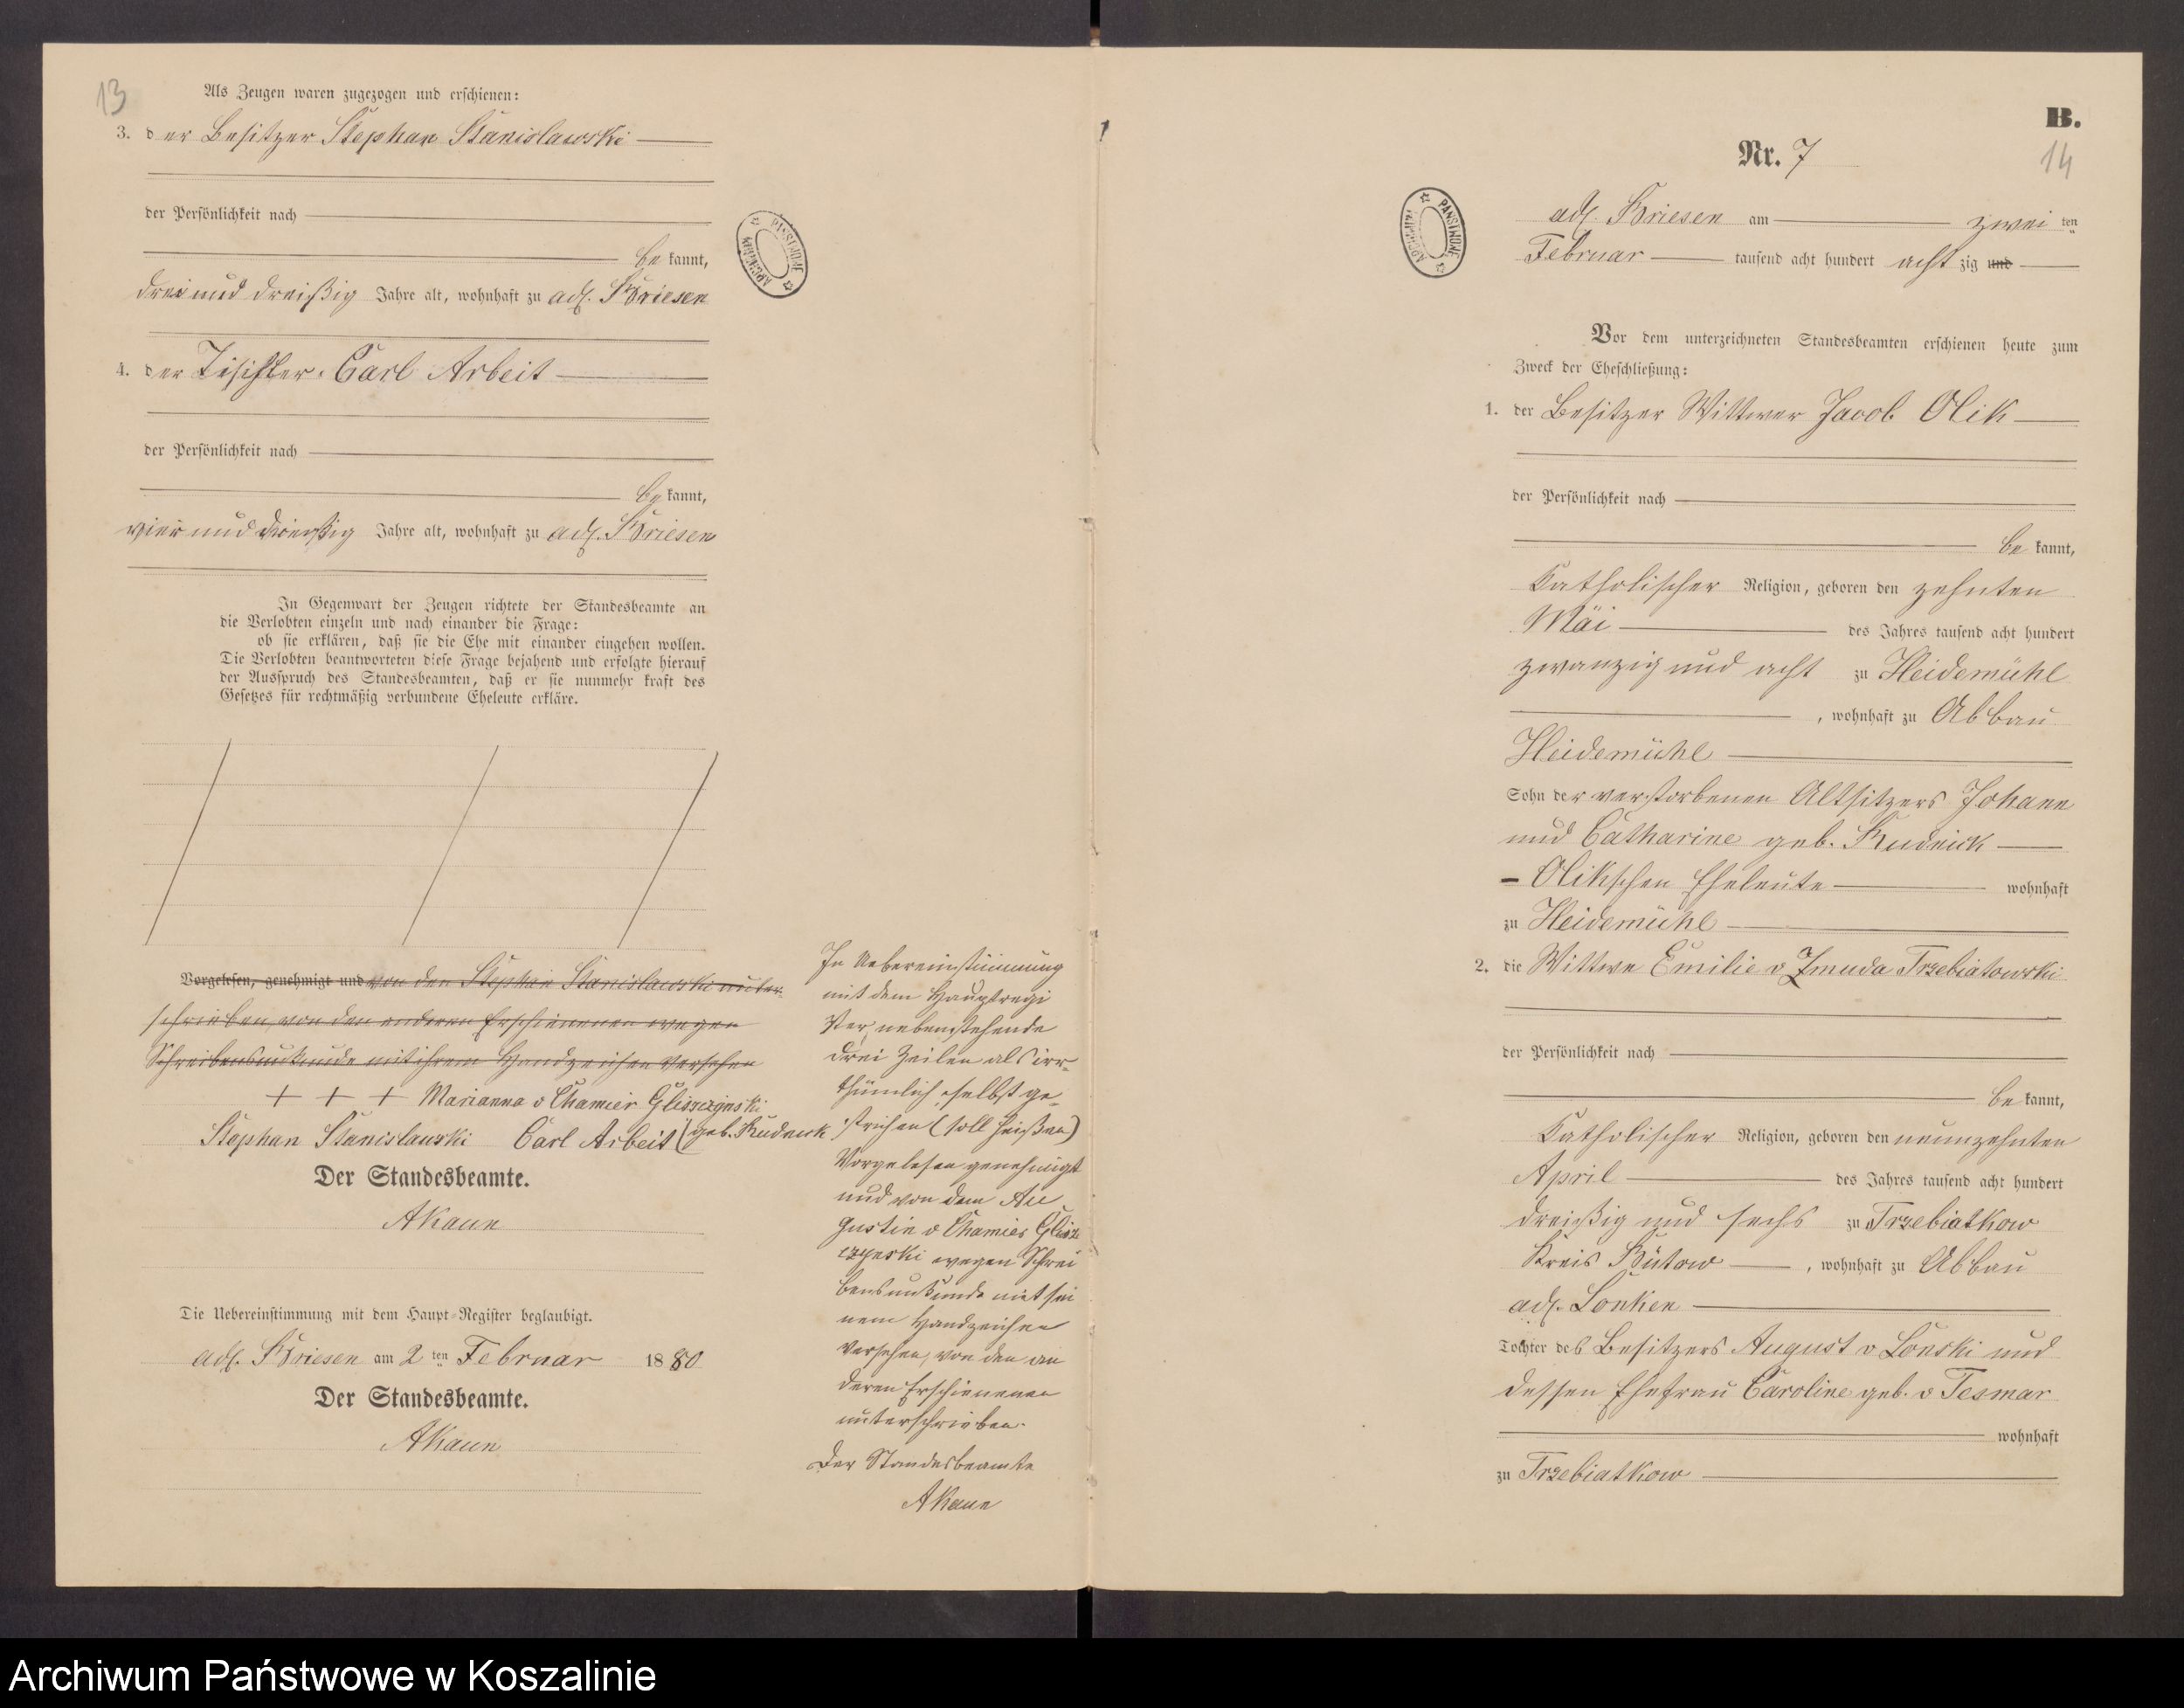 13
Als Zeugen waren zugezogen und erschienen:
3. der Besitzer Stephan Stanislawski
der Persönlichkeit nach
be kannt,
drei und dreißig Jahre alt, wohnhaft zu adl. Briesen
4. der Tischler Carl Arbeit
der Persönlichkeit nach
be kannt,
vier und dreißig Jahre alt, wohnhaft zu adl. Briesen
In Gegenwart der Zeugen richtete der Standesbeamte an
die Verlobten einzeln und nach einander die Frage:
ob sie erklären, daß sie die Ehe mit einander eingehen wollen.
Die Verlobten beantworteten diese Frage bejahend und erfolgte hierauf
der Ausspruch des Standesbeamten, daß er sie nunmehr kraft des
Gesetzes für rechtmäßig verbundene Eheleute erkläre.
Vorgelesen, genehmigt und von den Stephan Stanislawski unter-
schrieben, von den anderen Erschienenen wegen
Schreibensunkunde mit ihrem Handzeichen versehen
+ + + Marianna v Chamier Gliszczynski
Stephan Stanislauski Carl Arbeit (geb. Rudnick
Der Standesbeamte.
AKaun
Die Uebereinstimmung mit dem Haupt-Register beglaubigt.
adl. Briesen am 2 ten Februar 1880
Der Standesbeamte.
AKaun
In Uebereinstimmung
mit dem Hauptregi
ster nebenstehende
drei Zeilen als irr-
thümlich selbst ge-
strichen (soll heißen)
Vorgelesen genehmigt
und von dem Au
gustin v Chamier Glisz
czynski wegen Schrei
bensunkunde mit sei
nem Handzeichen
versehen, von den an
deren Erschienenen
unterschrieben.
Der Standesbeamte
AKaun
ARCHIWUM PAŃSTWOWE
B.
Nr. 7
14
ARCHIWUM PAŃSTWOWE
adl. Briesen am zwei ten
Februar tausend acht hundert acht zig und
Vor dem unterzeichneten Standesbeamten erschienen heute zum
Zweck der Eheschließung:
1. der Besitzer Wittwer Jacob Olik
der Persönlichkeit nach
be kannt,
Katholischer Religion, geboren den zehnten
Mai des Jahres tausend acht hundert
zwanzig und acht zu Heidemühl
, wohnhaft zu Abbau
Heidemühl
Sohn der verstorbenen Altsitzers Johann
und Catharine geb. Rudnick
- Olikschen Eheleute wohnhaft
zu Heidemühl
2. die Wittwe Emilie v Zmuda Trzebiatowski
der Persönlichkeit nach
be kannt,
Katholischer Religion, geboren den neunzehnten
April des Jahres tausend acht hundert
dreißig und sechs zu Trzebiatkow
Kreis Bütow, wohnhaft zu Abbau
adl. Lonken
Tochter des Besitzers August v Lonski und
dessen Ehefrau Caroline geb. v Tesmar
wohnhaft
zu Trzebiatkow
Archiwum Państwowe w Koszalinie